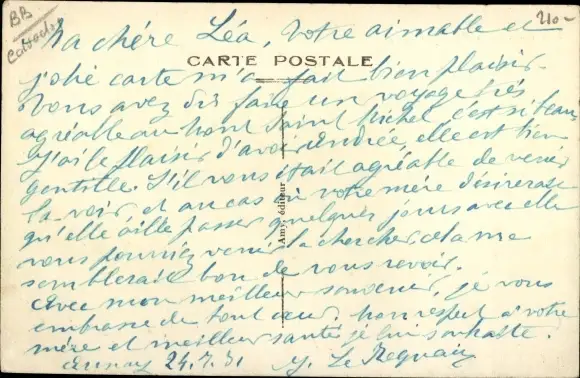 BB
Calvados
210-
Ma chère Léa, Votre aimable et
CARTE POSTALE
jolie carte m'a fait bien plaisir.
Vous avez dû faire un voyage très
agréable au Mont Saint Michel c'est si beau
J'ai le plaisir d'avoir Andrée, elle est bien
gentille. S'il vous était agréable de venir
la voir, et au cas où votre mère désirerait
qu'elle aille passer quelques jours avec elle
vous pourriez venir la chercher, cela me
semblerait bon de vous revoir.
Avec mon meilleur souvenir, je vous
embrasse de tout cœur. Mon respect à votre
mère et meilleure santé je lui souhaite.
Aunay 24.7.31 Y. Le
Amy, éditeur